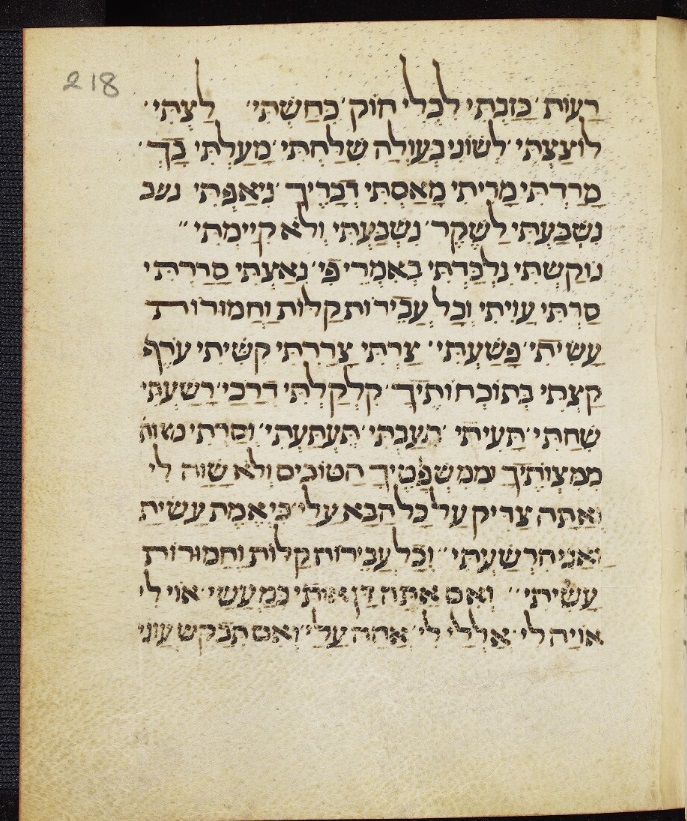 218
רָעוֹת כִּזַּבְתִּי לְבְלִי חוֹק כִּחַשְׁתִּי לַצְתִּי
לוֹצַצְתִּי לְשׁוֹנִי בְעַוְלָה שִׁלַּחְתִּי מָעַלְתִּי בָךְ
מָרַדְתִּי מָרִיתִי מָאַסְתִּי דְּבָרֶיךָ נִיאַפְתִּי נשב
נִשְׁבַּעְתִּי לַשֶּׁקֶר נִשְׁבַּעְתִּי וְלֹא קִיַּימְתִּי
נוֹקַשְׁתִּי נִלְכַּדְתִּי בְאִמְרֵי פִי נִאַצְתִּי סָרַרְתִּי
סַרְתִּי עָוִיתִי וְכָל עֲבֵירוֹת קַלּוֹת וַחֲמוּרוֹת
עָשִׂיתִי פָּשַׁעְתִּי צַרְתִּי צָרַרְתִּי קִשִּׁיתִי עֹרֶף
קַצְתִּי בְּתוֹכְחוֹתֶיךָ קִלְקַלְתִּי דְרָכַי רָשַׁעְתִּי
שִׁחַתִּי תָּעִיתִי תִּעַבְתִּי תִּעְתַּעְתִּי וְסַרְתִּי
מִמִּצְוֹתֶיךָ וּמִמִּשְׁפָּטֶיךָ הַטּוֹבִים וְלֹא שָׁוָה לִי
וְאַתָּה צַדִּיק עַל כָּל הַבָּא עָלַי כִּי אֱמֶת עָשִׂיתָ
וַאֲנִי הִרְשָׁעְתִּי וְכָל עֲבֵירוֹת קַלּוֹת וַחֲמוּרוֹת
עָשִׂיתִי וְאִם אַתָּה דָן אוֹתִי כְּמַעֲשַׂי אוֹי לִי
אוֹיָה לִי אַלְלַי לִי אֲהָהּ עָלַי וְאִם תְּבַקֵּשׁ עֲוֹנִי